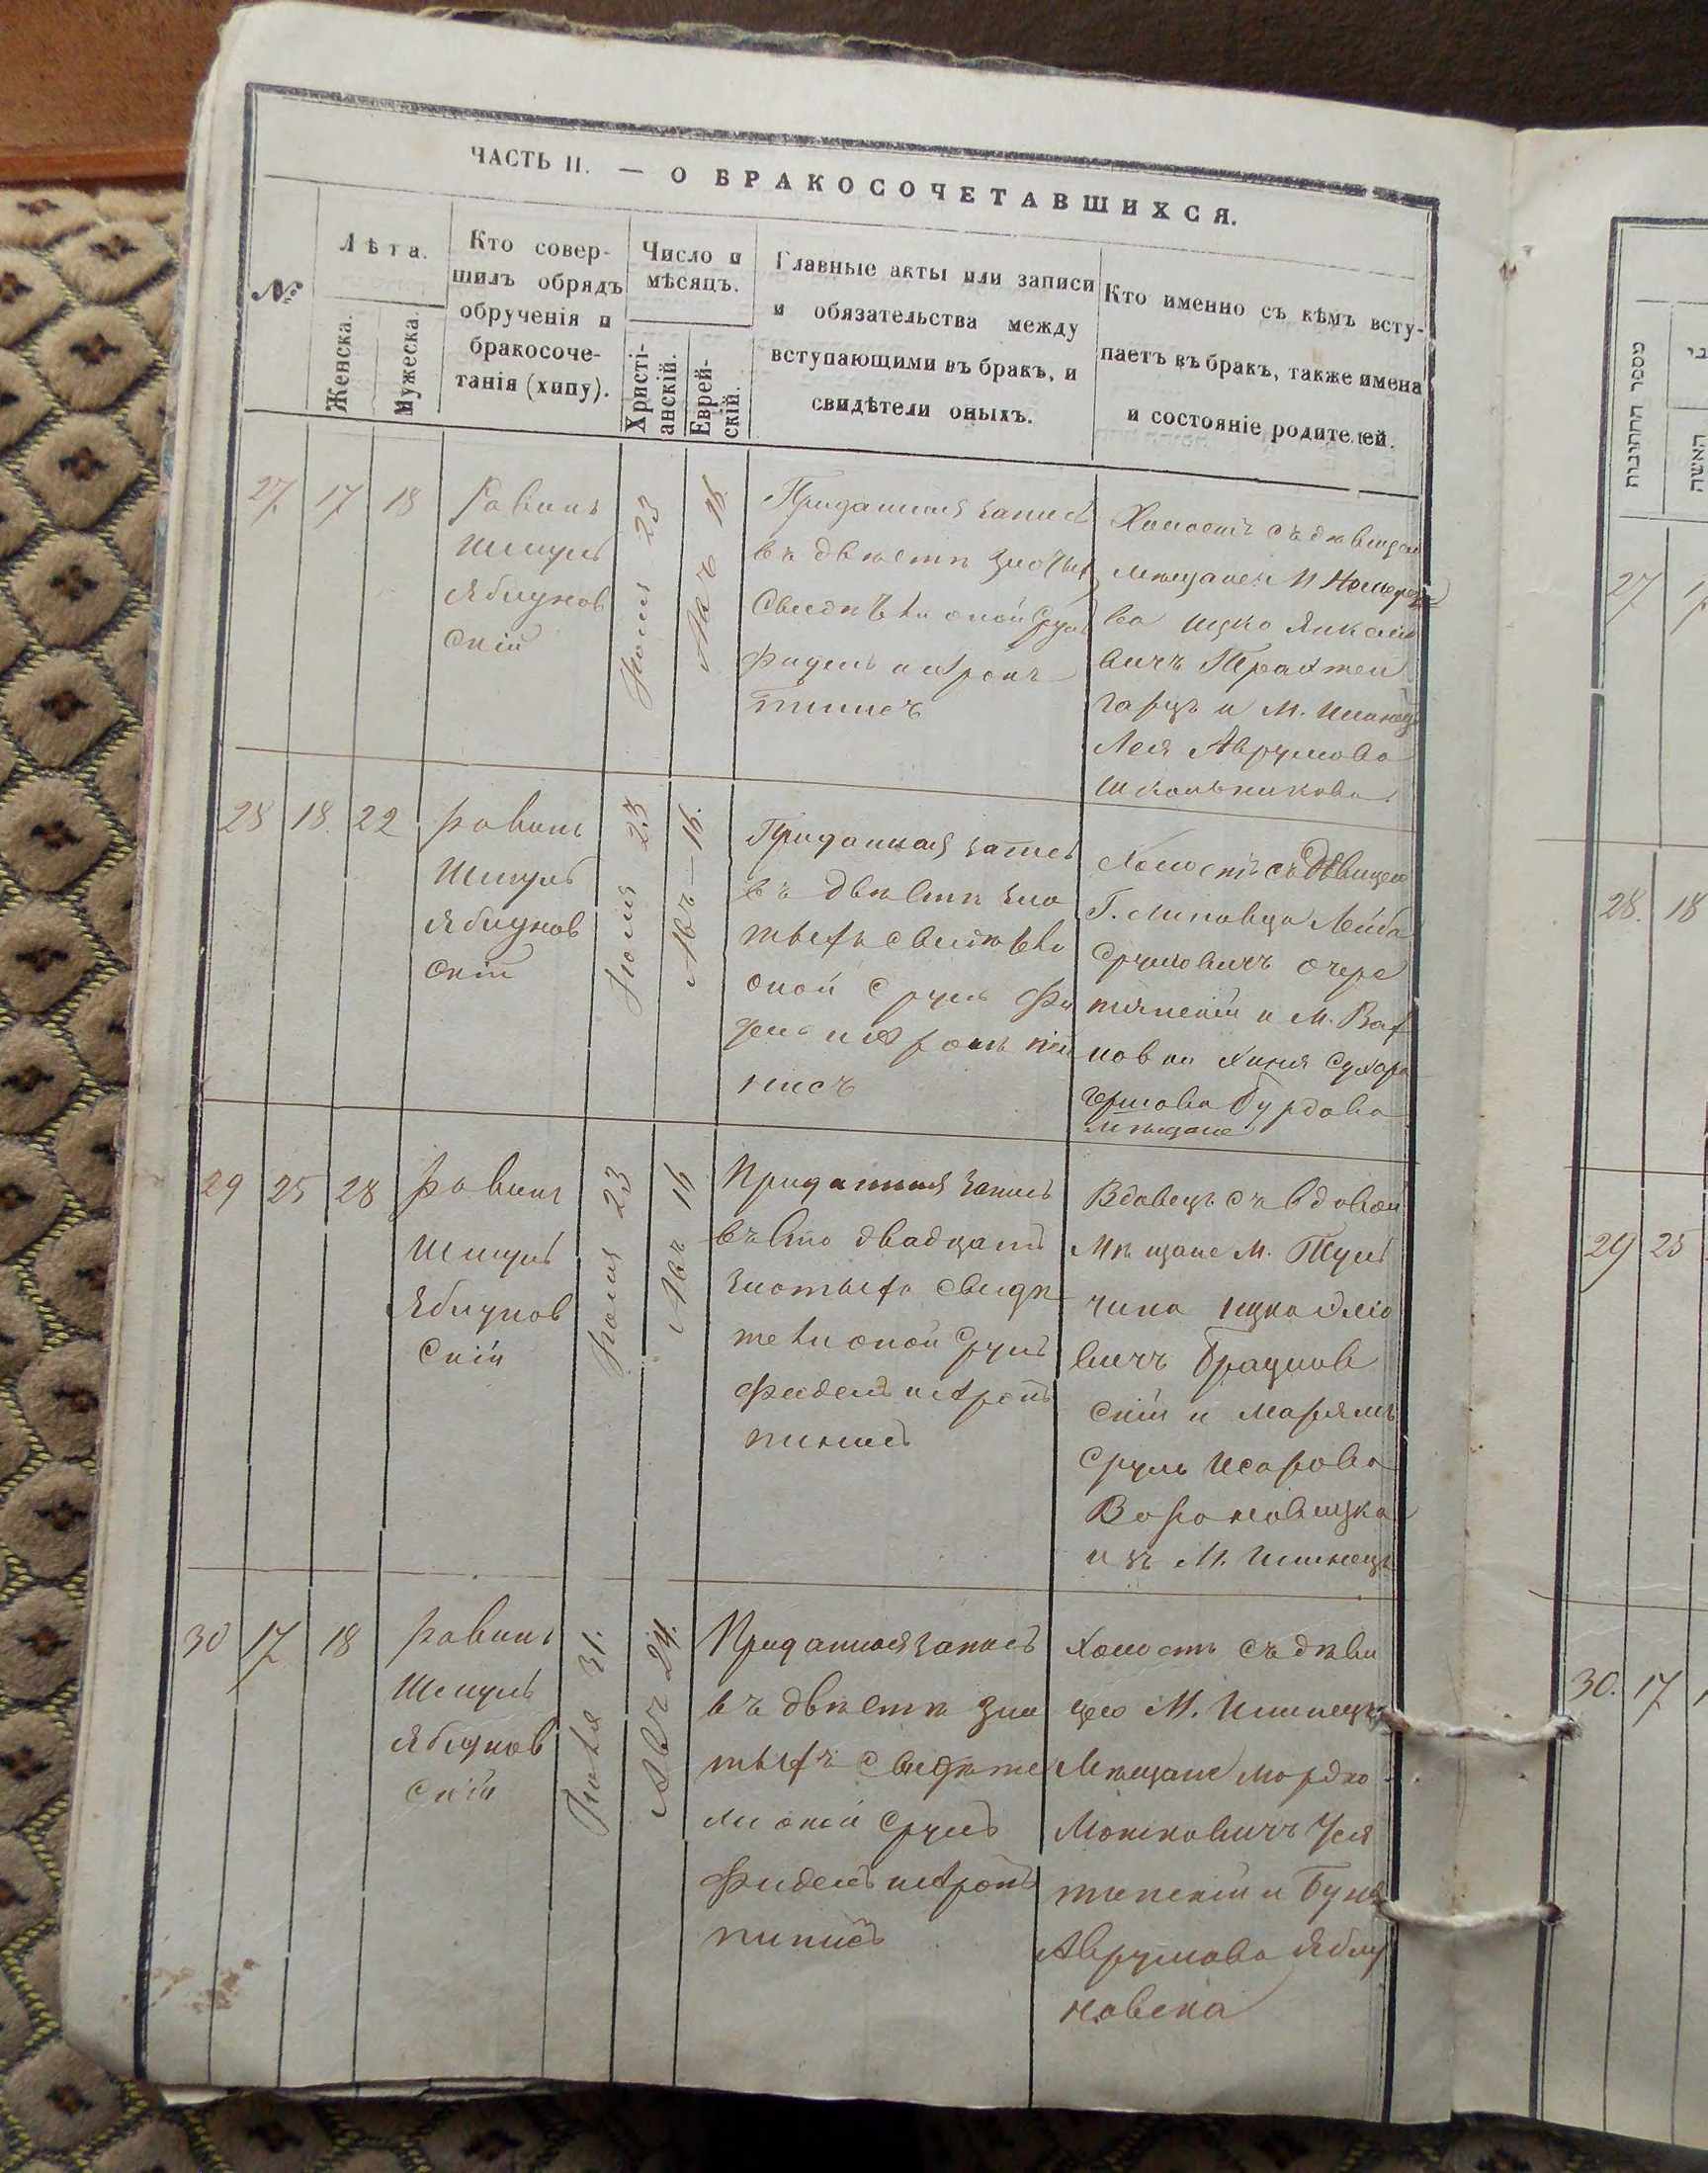 ЧАСТЬ II. — О БРАКОСОЧЕТАВШИХСЯ.
№
Лѣта.
Женска.
Мужеска.
Кто совер-
шилъ обрядъ
обрученія и
бракосоче-
танія (хипу).
Число и
мѣсяцъ.
Христі-
анскій.
Еврей-
скій.
Главные акты или записи
и обязательства между
вступающими въ бракъ, и
свидѣтели оныхъ.
Кто именно съ кѣмъ всту-
паетъ въ бракъ, также имена
и состояніе родителей.
27
17
18
Равинъ
Шмуль
Яблунов
скій
Юлия 23
Авъ 16
Приданная запись
въ двѣсти злотых
Свидѣтели оной Сруль
Фидель и Аронъ
Холостъ съ дѣвицею
мѣщане М
ва Ицко Янкелио
вичъ Трахтен
гарцъ и М. Илинецъ
Лея Аврумова
Школьникова.
28
18
22
Равинъ
Шмуль
Яблунов
скій
Юлия 23
Авъ — 16.
Приданная запись
въ двѣсти зло
тыхъ свидѣтели
оной Сруль Фи
дель и Аронъ пи
нисъ
Холостъ съ дѣвицею
Г. Липовца Лейба
Срулиовичъ Очере
тянскій и М. Вах
новки Хиня Сухара
Гершова Бурдова
мѣщане
29
25
28
Равинъ
Шмуль
Яблунов
скій
Юлия 23
Авъ 16
Приданная запись
въ сто двадцать
злотыхъ свидѣ
тели оной Сруль
Фидель и Аронъ
пинисъ
Вдовецъ съ вдовой
Мѣщане М. Туль
чина Ицко
вичъ Брацлов
скій и Марьямъ
Сруль Исарова
Вороновицка
изъ М. Илинецъ
30
17
18
Равинъ
Шмуль
Яблунов
скій
Юлія 31.
Авъ 24.
Приданная запись
въ двѣсти зло
тыхъ свидѣте
ли оной Сруль
Фидель и Аронъ
пинисъ
Холостъ съ дѣви
цею М. Илинецъ
Мѣщане Мордко
Мошковичъ
и Буня
Аврумова Яблу
новска
מספר החתונות
האשה
27
28.
18
29
25
30.
17